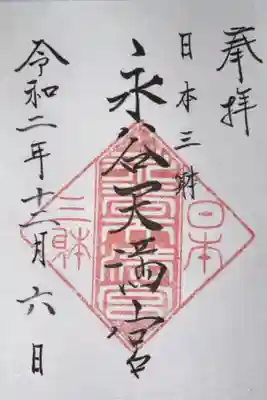 奉拝
日本三躰
永谷天満宮
令和二年十二月六日
日本
三躰